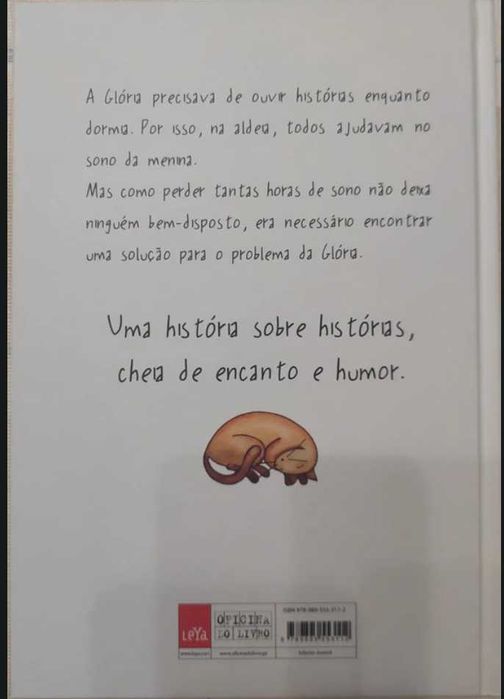 A Glória precisava de ouvir histórias enquanto
dormia. Por isso, na aldeia, todos ajudavam no
sono da menina.
Mas como perder tantas horas de sono não deixa
ninguém bem-disposto, era necessário encontrar
uma solução para o problema da Glória.
Uma história sobre histórias,
cheia de encanto e humor.
LEYA
OFICINA
DO LIVRO